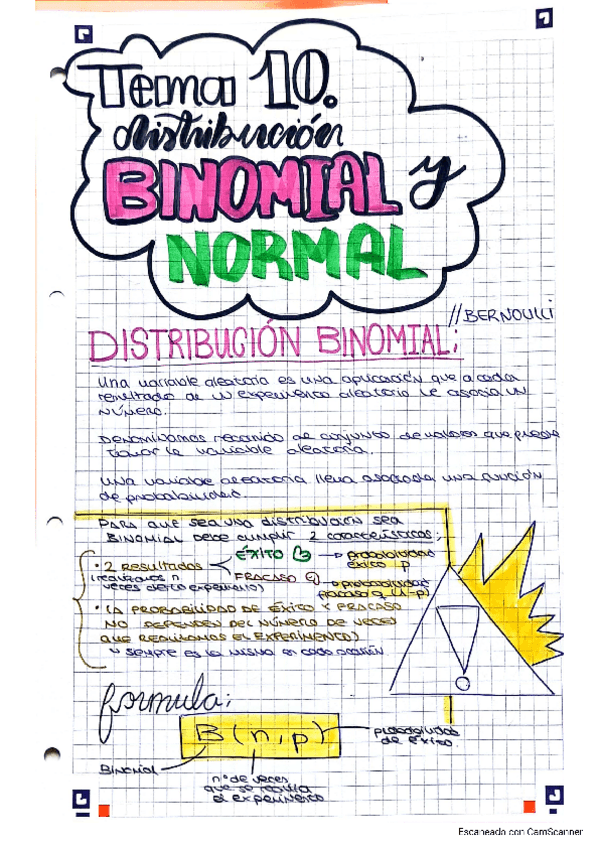 Tema 10.
distribución
BINOMIAL y
NORMAL
//BERNOULLI
DISTRIBUCIÓN BINOMIAL:
Una variable aleatoria es una aplicación que a cada
resultado de un experimento aleatorio le asocia un
número.
Denominamos recorrido al conjunto de valores que puede
tomar la variable aleatoria.
Una variable aleatoria lleva asociada una función
de probabilidad.
PARA que sea una distribución sea
BINOMIAL debe cumplir 2 características:
• 2 resultados
ÉXITO → probabilidad
éxito p
(realizamos n
veces dicho experimento)
FRACASO → probabilidad
fracaso q (1-p)
• (LA PROBABILIDAD DE ÉXITO Y FRACASO
NO DEPENDEN DEL NÚMERO DE VECES
QUE REALIZAMOS EL EXPERIMENTO)
siempre es la misma en cada ocasión
formula:
B(n,p)
probabilidad
de éxito.
Binomial
nº de veces
que se realiza
el experimento
Escaneado con CamScanner